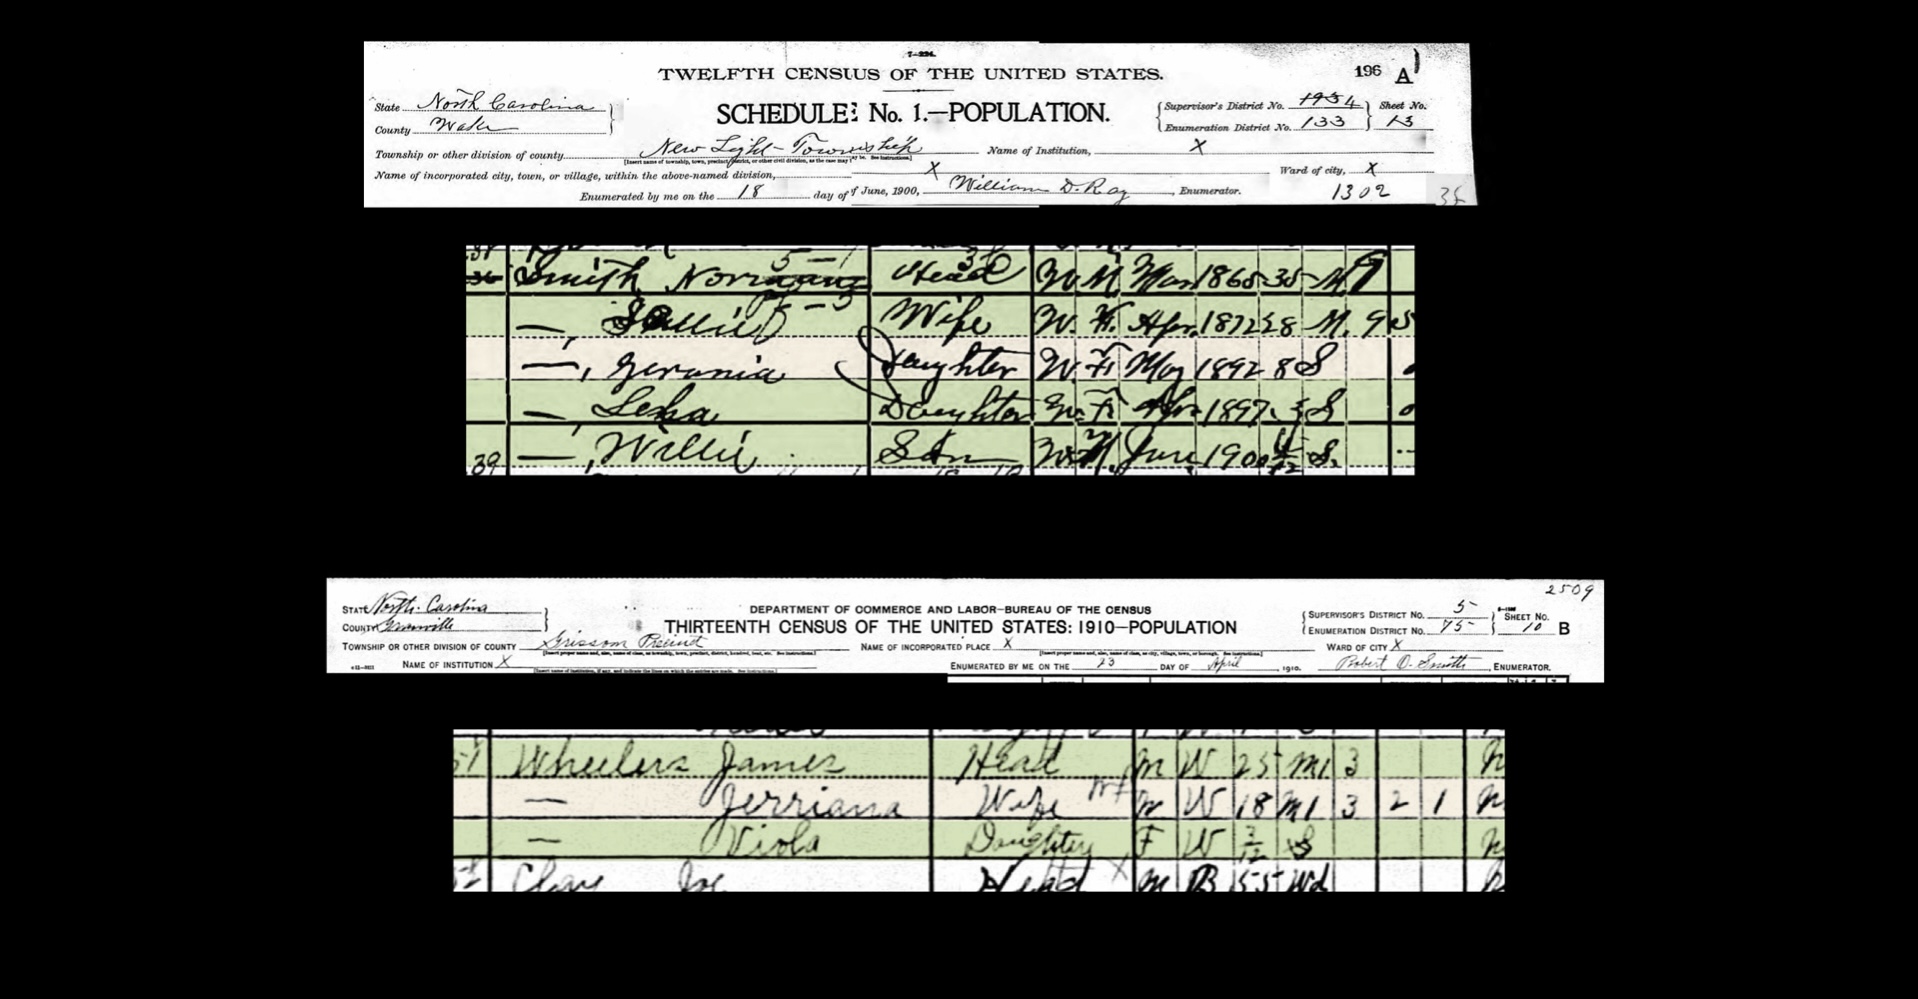 7-224.
TWELFTH CENSUS OF THE UNITED STATES.
196 A
State North Carolina
County Wake
SCHEDULE No. 1.—POPULATION.
Supervisor's District No. 1934 Sheet No.
Enumeration District No. 133 13
Township or other division of county New Light Township Name of Institution, X
[Insert name of township, town, precinct, district, or other civil division, as the case may be. See instructions.]
Name of incorporated city, town, or village, within the above-named division, X Ward of city, X
Enumerated by me on the 18 day of June, 1900, William D. Ray, Enumerator. 1302
Smith Norman Head W M Mar 1865 35 M 9
—, Sallie F Wife W. F. Apr. 1872 28 M. 9 5
—, Gerania Daughter W. F. May 1892 8 S
—, Lesha Daughter W. F. Apr 1897 3 S
39 —, Willie Son W. M. June 1900 S.
2509
STATE North Carolina
COUNTY Granville
DEPARTMENT OF COMMERCE AND LABOR—BUREAU OF THE CENSUS
THIRTEENTH CENSUS OF THE UNITED STATES: 1910—POPULATION
SUPERVISOR'S DISTRICT NO. 5 SHEET NO.
ENUMERATION DISTRICT NO. 75 10 B
TOWNSHIP OR OTHER DIVISION OF COUNTY Grissom Precinct NAME OF INCORPORATED PLACE X WARD OF CITY X
NAME OF INSTITUTION X ENUMERATED BY ME ON THE 23 DAY OF April, 1910. Robert O. Smith, ENUMERATOR.
51 Wheelers James Head M W 25 M1 3
— Jerriana Wife W 18 M1 3 2 1
— Viola Daughter F W 3/12 S
Clay Joe Head M B 55 Wd